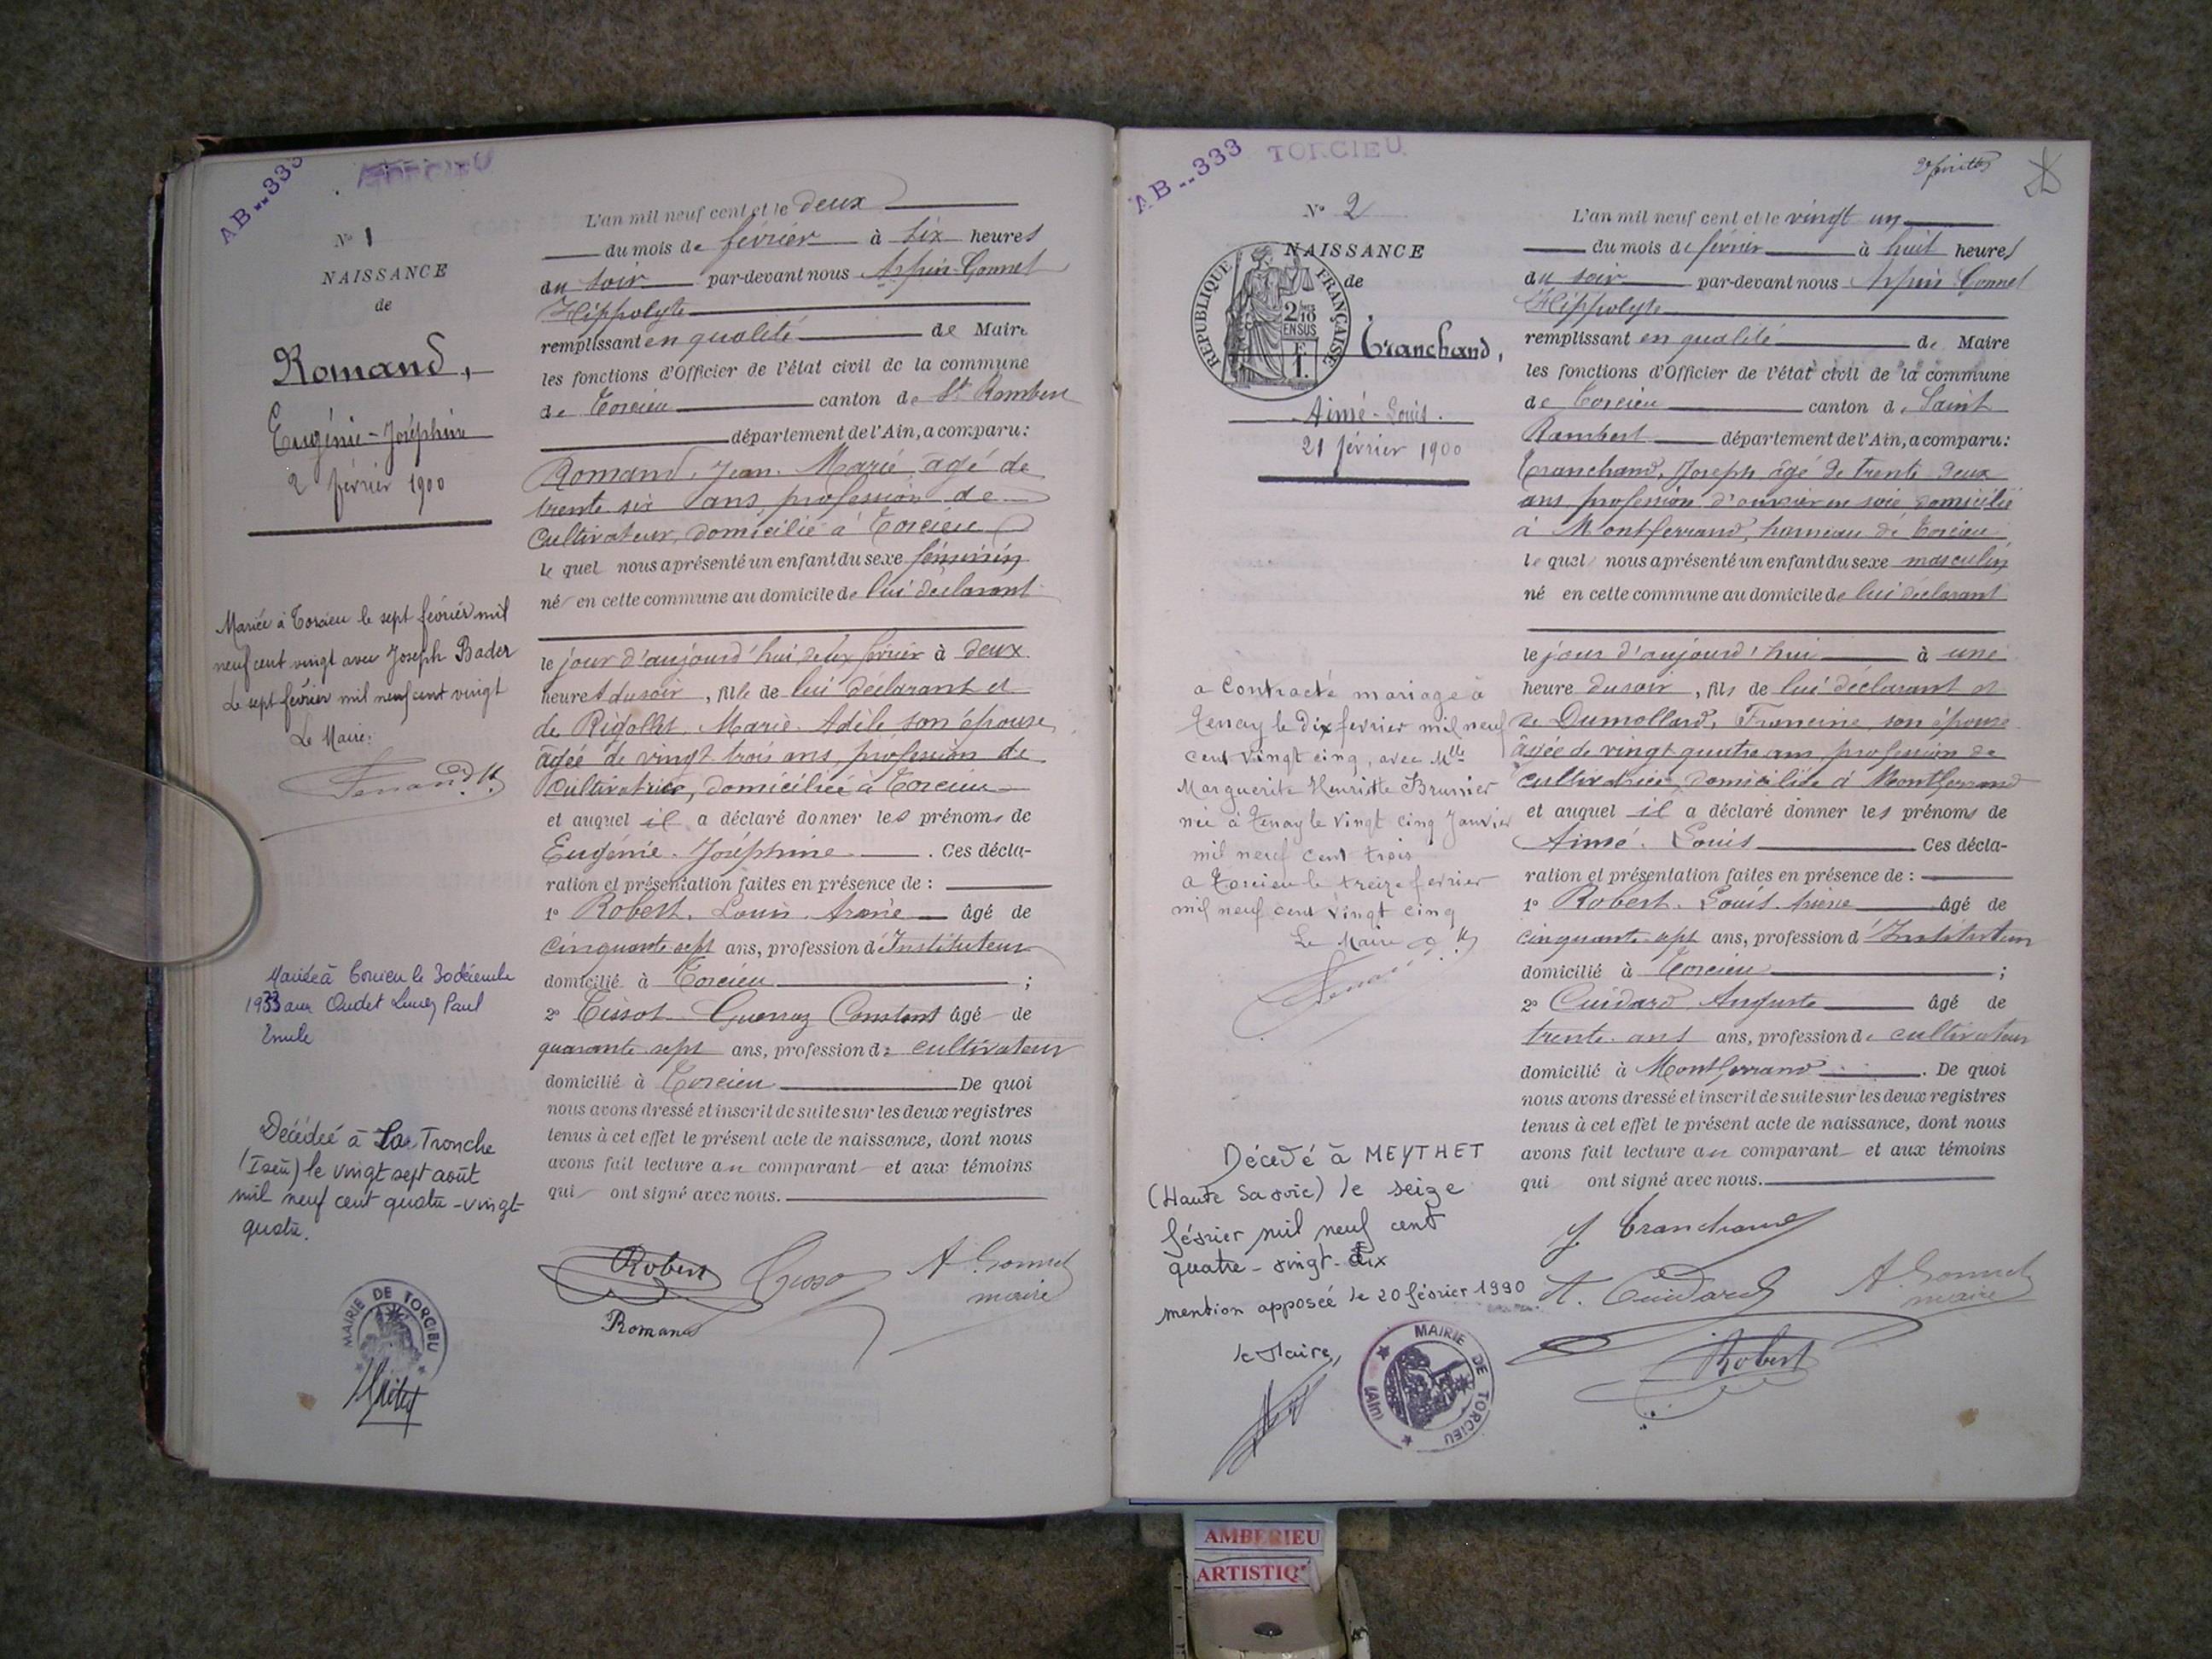 AB..333
TORCIEU
N° 1
NAISSANCE
de
Romand,
Eugénie-Joséphine
2 février 1900
Mariée à Torcieu le sept février mil
neuf cent vingt avec Joseph Bader
Le sept février mil neuf cent vingt
Le Maire:
Mariée à Torcieu le 30 décembre
1933 avec Oudet Paul
Emile
Décédée à La Tronche
(Isère) le vingt sept août
mil neuf cent quatre-vingt-
quatre.
MAIRIE DE TORCIEU
L'an mil neuf cent et le deux
du mois de février à six heures
du soir par-devant nous Arpin-Gonnet
Hippolyte
remplissant en qualité de Maire
les fonctions d'Officier de l'état civil de la commune
de Torcieu canton de St Rambert
département de l'Ain, a comparu:
Romand, Jean-Marie âgé de
trente six ans, profession de
cultivateur, domicilié à Torcieu
lequel nous a présenté un enfant du sexe féminin
né en cette commune au domicile de lui déclarant
le jour d'aujourd'hui deux février à deux
heures du soir, fille de lui déclarant et
de Rigollet, Marie-Adèle son épouse
âgée de vingt trois ans, profession de
cultivatrice, domiciliée à Torcieu
et auquel il a déclaré donner les prénoms de
Eugénie-Joséphine. Ces décla-
ration et présentation faites en présence de :
1° Robert, Louis âgé de
cinquante sept ans, profession d'Instituteur
domicilié à Torcieu ;
2° Tissot-Guerraz Constant âgé de
quarante sept ans, profession de cultivateur
domicilié à Torcieu De quoi
nous avons dressé et inscrit de suite sur les deux registres
tenus à cet effet le présent acte de naissance, dont nous
avons fait lecture au comparant et aux témoins
qui ont signé avec nous.
Robert A. Gonnet
maire
Romand
AB..333
TORCIEU
N° 2
NAISSANCE
de
REPUBLIQUE FRANÇAISE
2/10
EN SUS
F
1.
Tranchand,
Aimé-Louis.
21 février 1900
a Contracté mariage à
Tenay le Dix fevrier mil neuf
cent vingt cinq, avec Mlle
Marguerite Henriette Brunier
née à Tenay le vingt cinq Janvier
mil neuf cent trois
a Torcieu le treize fevrier
mil neuf cent vingt cinq
Le Maire
Décédé à MEYTHET
(Haute Savoie) le seize
février mil neuf cent
quatre-vingt-dix
mention apposée le 20 février 1990
le Maire,
MAIRIE DE TORCIEU
(Ain)
L'an mil neuf cent et le vingt un
du mois de février à huit heures
du soir par-devant nous Arpin Gonnet
Hippolyte
remplissant en qualité de Maire
les fonctions d'Officier de l'état civil de la commune
de Torcieu canton de Saint
Rambert département de l'Ain, a comparu:
Tranchand, Joseph âgé de trente deux
ans profession d'ouvrier en soie, domicilié
à Montferrand, hameau de Torcieu
lequel nous a présenté un enfant du sexe masculin
né en cette commune au domicile de lui déclarant
le jour d'aujourd'hui à une
heure du soir, fils de lui déclarant et
de Dumollard, Francine son épouse
âgée de vingt quatre ans, profession de
cultivatrice, domiciliée à Montferrand
et auquel il a déclaré donner les prénoms de
Aimé-Louis Ces décla-
ration et présentation faites en présence de :
1° Robert, Louis âgé de
cinquante sept ans, profession d'Instituteur
domicilié à Torcieu ;
2° Cuidard Auguste âgé de
trente ans ans, profession de cultivateur
domicilié à Montferrand. De quoi
nous avons dressé et inscrit de suite sur les deux registres
tenus à cet effet le présent acte de naissance, dont nous
avons fait lecture au comparant et aux témoins
qui ont signé avec nous.
J. Tranchand
A. Cuidard A. Gonnet
maire
Robert
AMBERIEU
ARTISTIQ